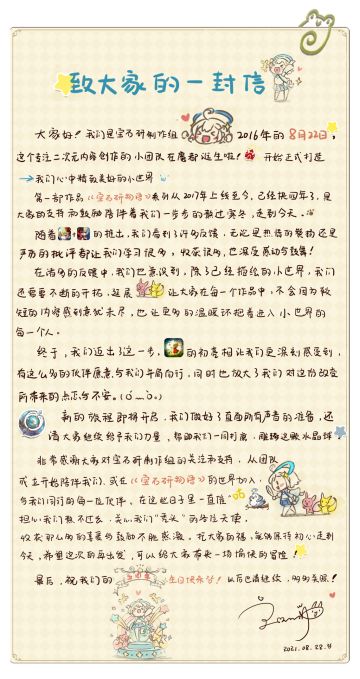 致大家的一封信
大家好！我们是宝石研制作组 2016年的8月22日，
这个专注二次元内容创作的小团队在魔都诞生啦！开始正式打造
我们心中精致美好的小世界
第一部作品《宝石研物语》系列从2017年上线至今，已经快四年了，是
大家的支持和鼓励陪伴着我们一步步的熬过寒冬，走到今天。
随着 的推出，我们看到了许多反馈，无论是热情的赞扬还是
严厉的批评都让我们学习很多，收获很多，也深度感动与鼓舞！
在诸多的反馈中，我们也意识到，除了已经描绘的小世界，我们
还需要不断的开拓、延展 让大家在每一个作品中，不会因为较
短的内容感到意犹未尽，也让更多的温暖环抱着进入小世界的
每一个人。
终于，我们迈出了这一步， 的初亮相让我们更深刻感受到，
有这么多的伙伴愿意与我们并肩前行，同时也放大了我们对这份改变
所带来的忐忑与不安。
新的旅程即将开启，我们做好了直面所有声音的准备，还
请大家继续给予我们力量，帮助我们一同打磨、雕琢这颗水晶球
非常感谢大家对宝石研制作组的关注和支持，从团队
成立开始陪伴我们，或在《宝石研物语》的世界加入，
与我们同行的每一位伙伴，在这些日子里一直
担心我们熬不过冬、关心我们"秃头"的各位天使，
收获那么多的喜爱与鼓励不胜感激。托大家的福，能够保持初心走到
今天，希望这次的再出发，可以给大家带来一场愉快的冒险！
最后，祝我们的 生日快乐！以后也请继续，多多关照！
2021.08.22